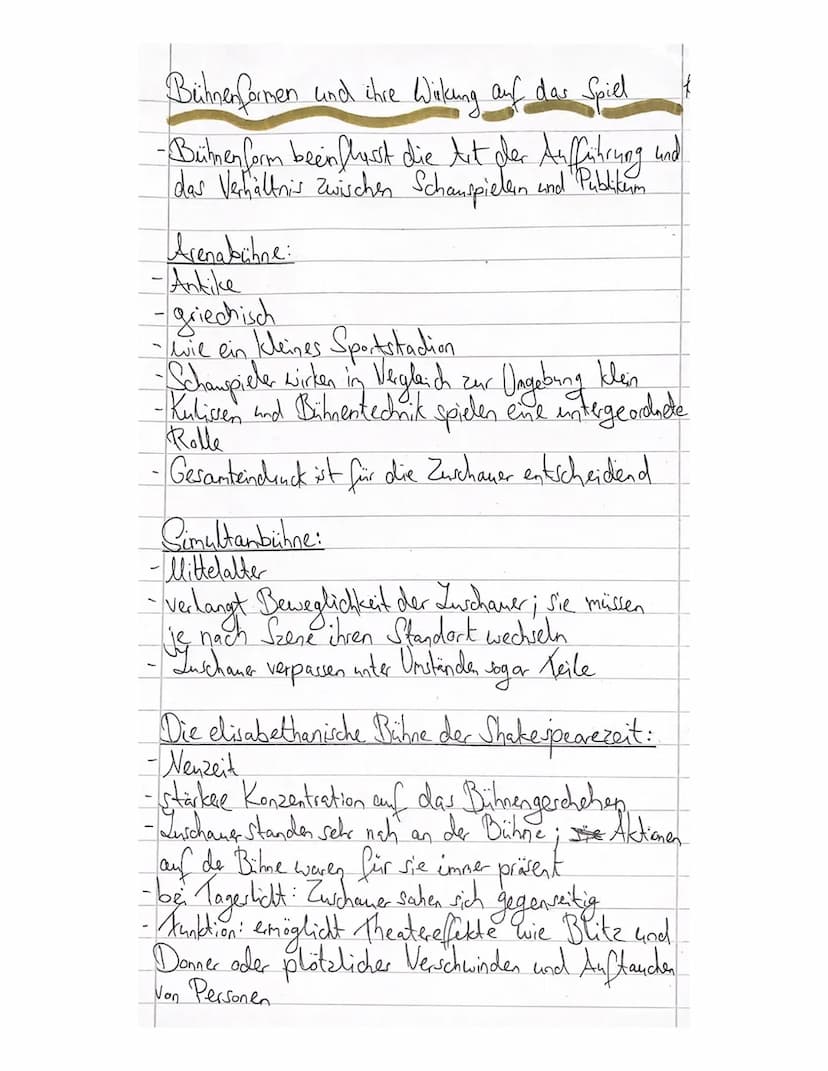 Bühnenformen und ihre Wirkung auf das Spiel
- Bühnenform beeinflusst die Art der Aufführung und
das Verhältnis zwischen Schauspielern und Publikum
Arenabühne:
- Antike
- griechisch
- wie ein kleines Sportstadion
- Schauspieler wirken im Vergleich zur Umgebung klein
- Kulissen und Bühnentechnik spielen eine untergeordnete
Rolle
- Gesamteindruck ist für die Zuschauer entscheidend
Simultanbühne:
- Mittelalter
- verlangt Beweglichkeit der Zuschauer; sie müssen
je nach Szene ihren Standort wechseln
- Zuschauer verpassen unter Umständen sogar Teile
Die elisabethanische Bühne der Shakespearezeit:
- Neuzeit
- stärkere Konzentration auf das Bühnengeschehen
- Zuschauer standen sehr nah an der Bühne; Aktionen
auf der Bühne waren für sie immer präsent
- bei Tageslicht: Zuschauer sahen sich gegenseitig
- Funktion: ermöglicht Theatereffekte wie Blitz und
Donner oder plötzliches Verschwinden und Auftauchen
von Personen